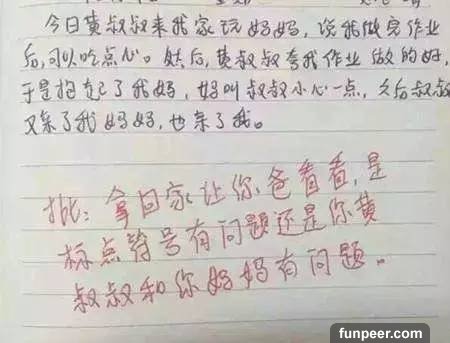 今日黄叔叔来我家玩妈妈，说我做完作业
后，可以吃点心。然后，黄叔叔夸我作业做的好，
于是抱起了我妈，妈叫叔叔小心一点，之后叔叔
又亲了我妈妈，也亲了我。
批：拿回家让你爸看看，是
标点符号有问题还是你黄
叔叔和你妈妈有问题。
funpeer.com